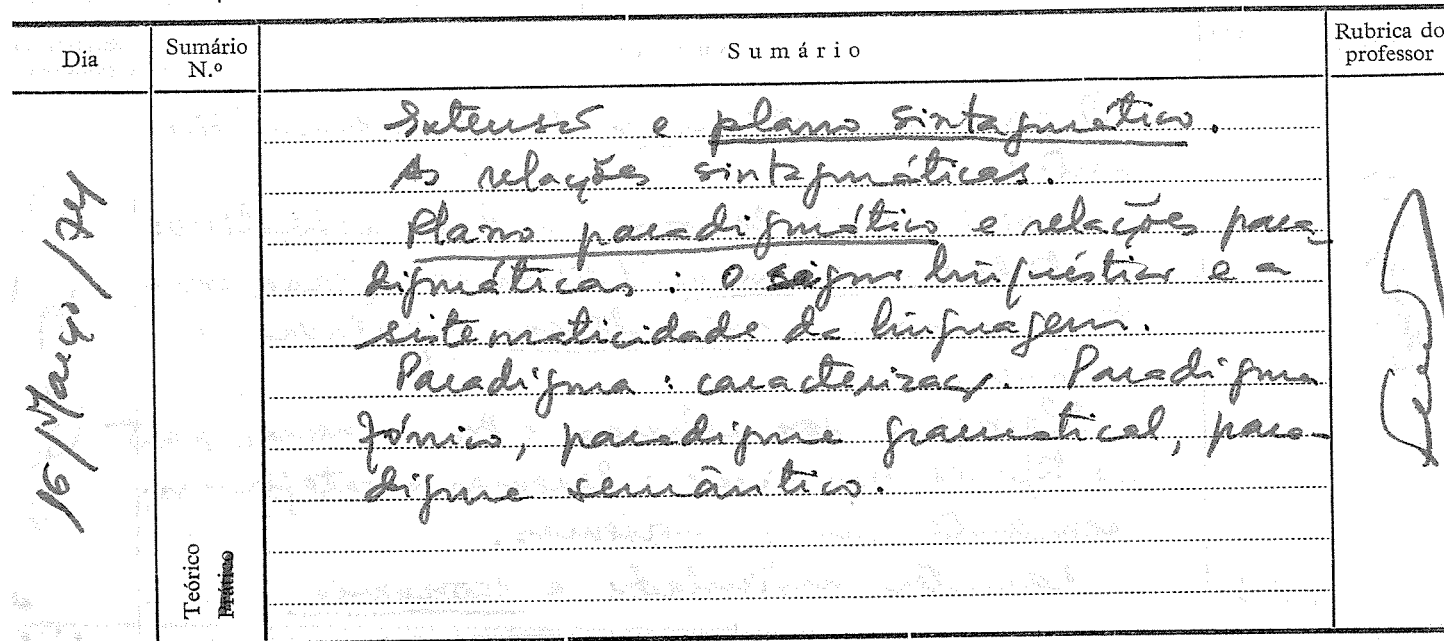 Dia
Sumário N.º
Sumário
Rubrica do professor
16/Março/74
Extensão e plano sintagmático.
As relações sintagmáticas.
Plano paradigmático e relações para-
digmáticas: o signo linguístico e a
sistematicidade da linguagem.
Paradigma: caracterização. Paradigma
fónico, paradigma gramatical, para-
digma semântico.
Teórico
Prático